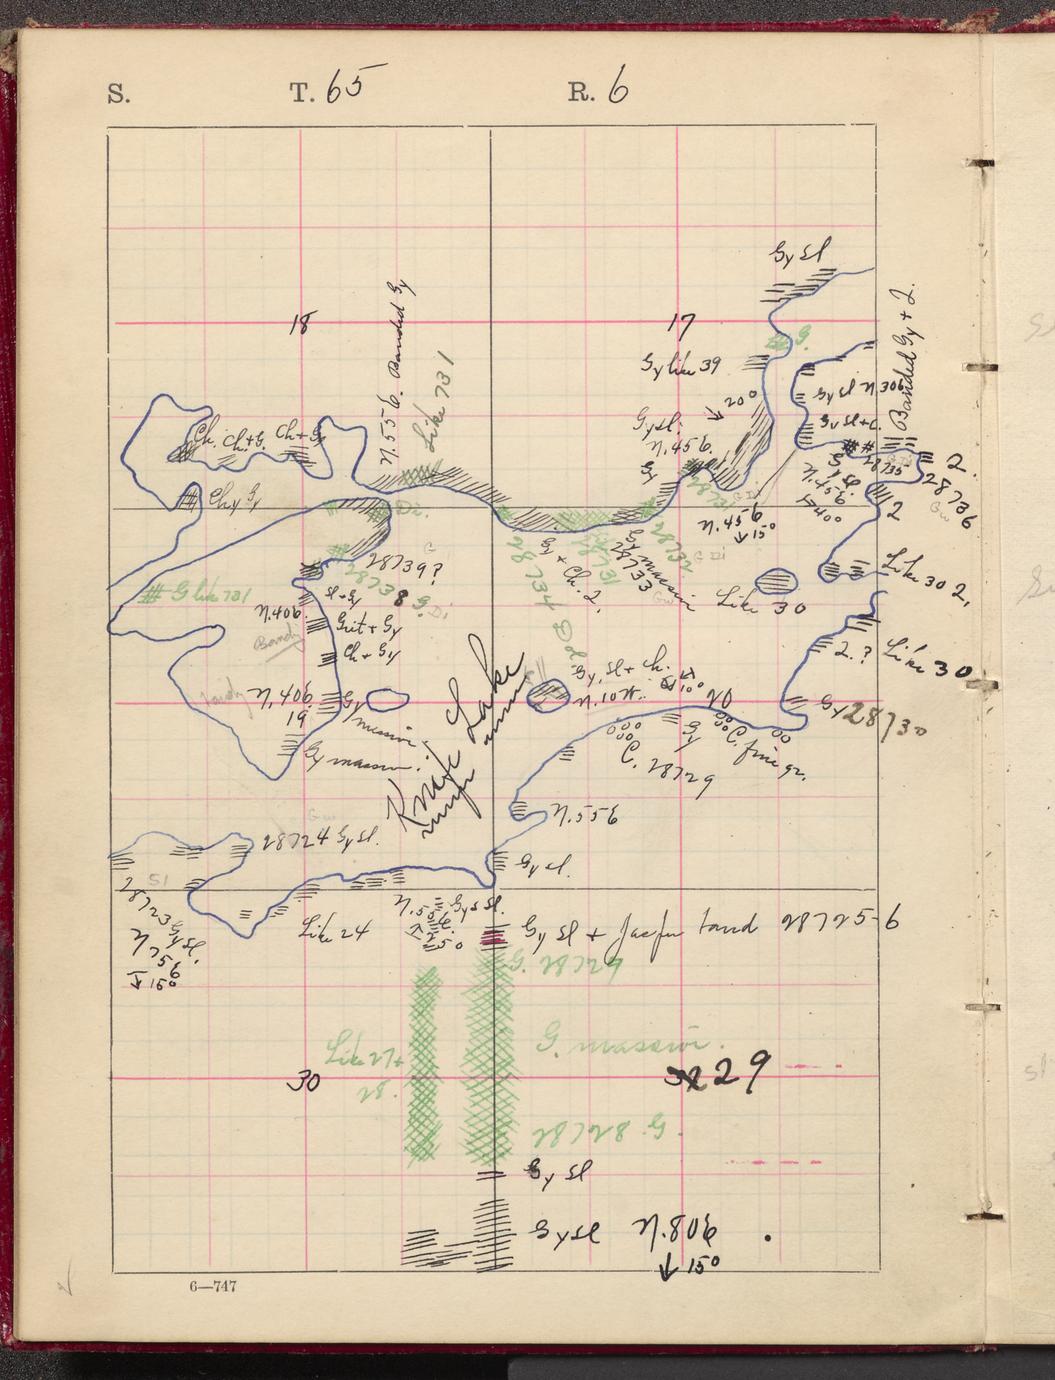 S. T. 65 R. 6
Gy Sl
18
17
N.55E. Banded Gy
Like 731
Gy like 39
G.
Banded Gy + 2.
20°
Gy Sl N 30E
Gy sl.
N.45E.
Gy
Gy Sl + C.
Ch. Ch.+G. Ch+Gy
28735
2.
28736
Gw
N.45E.
Ch+Gy
28731
N.45E
15°
2
28732
28739?
28738 G.
Gy massiv
28733
Gy + Ch. 2.
28731
28734
Like 30
Like 30 2.
# G like 731
Sl+Gy
N.40E.
Grit + Gy
Ch + Gy
Bandy
2.? Like 30
Knife Lake
Gy, Sl + Ch.
N.10W.
10°
N.40E.
19
G massive.
Gy massiv.
20
Gy 28730
Gy
C. fine gr.
C. 28729
N.55E
28724 Gy Sl.
Gw
Gy sl.
Sl
28723 Gy Sl.
N75E
15°
Like 24
N.55E. Gy s Sl.
50
Gy Sl + Jasper band 28725-6
G. 28727
G. massiv.
Like 27 +
28.
30
29
28728 G.
Gy Sl
Gy Sl N.80E
15°
6—747